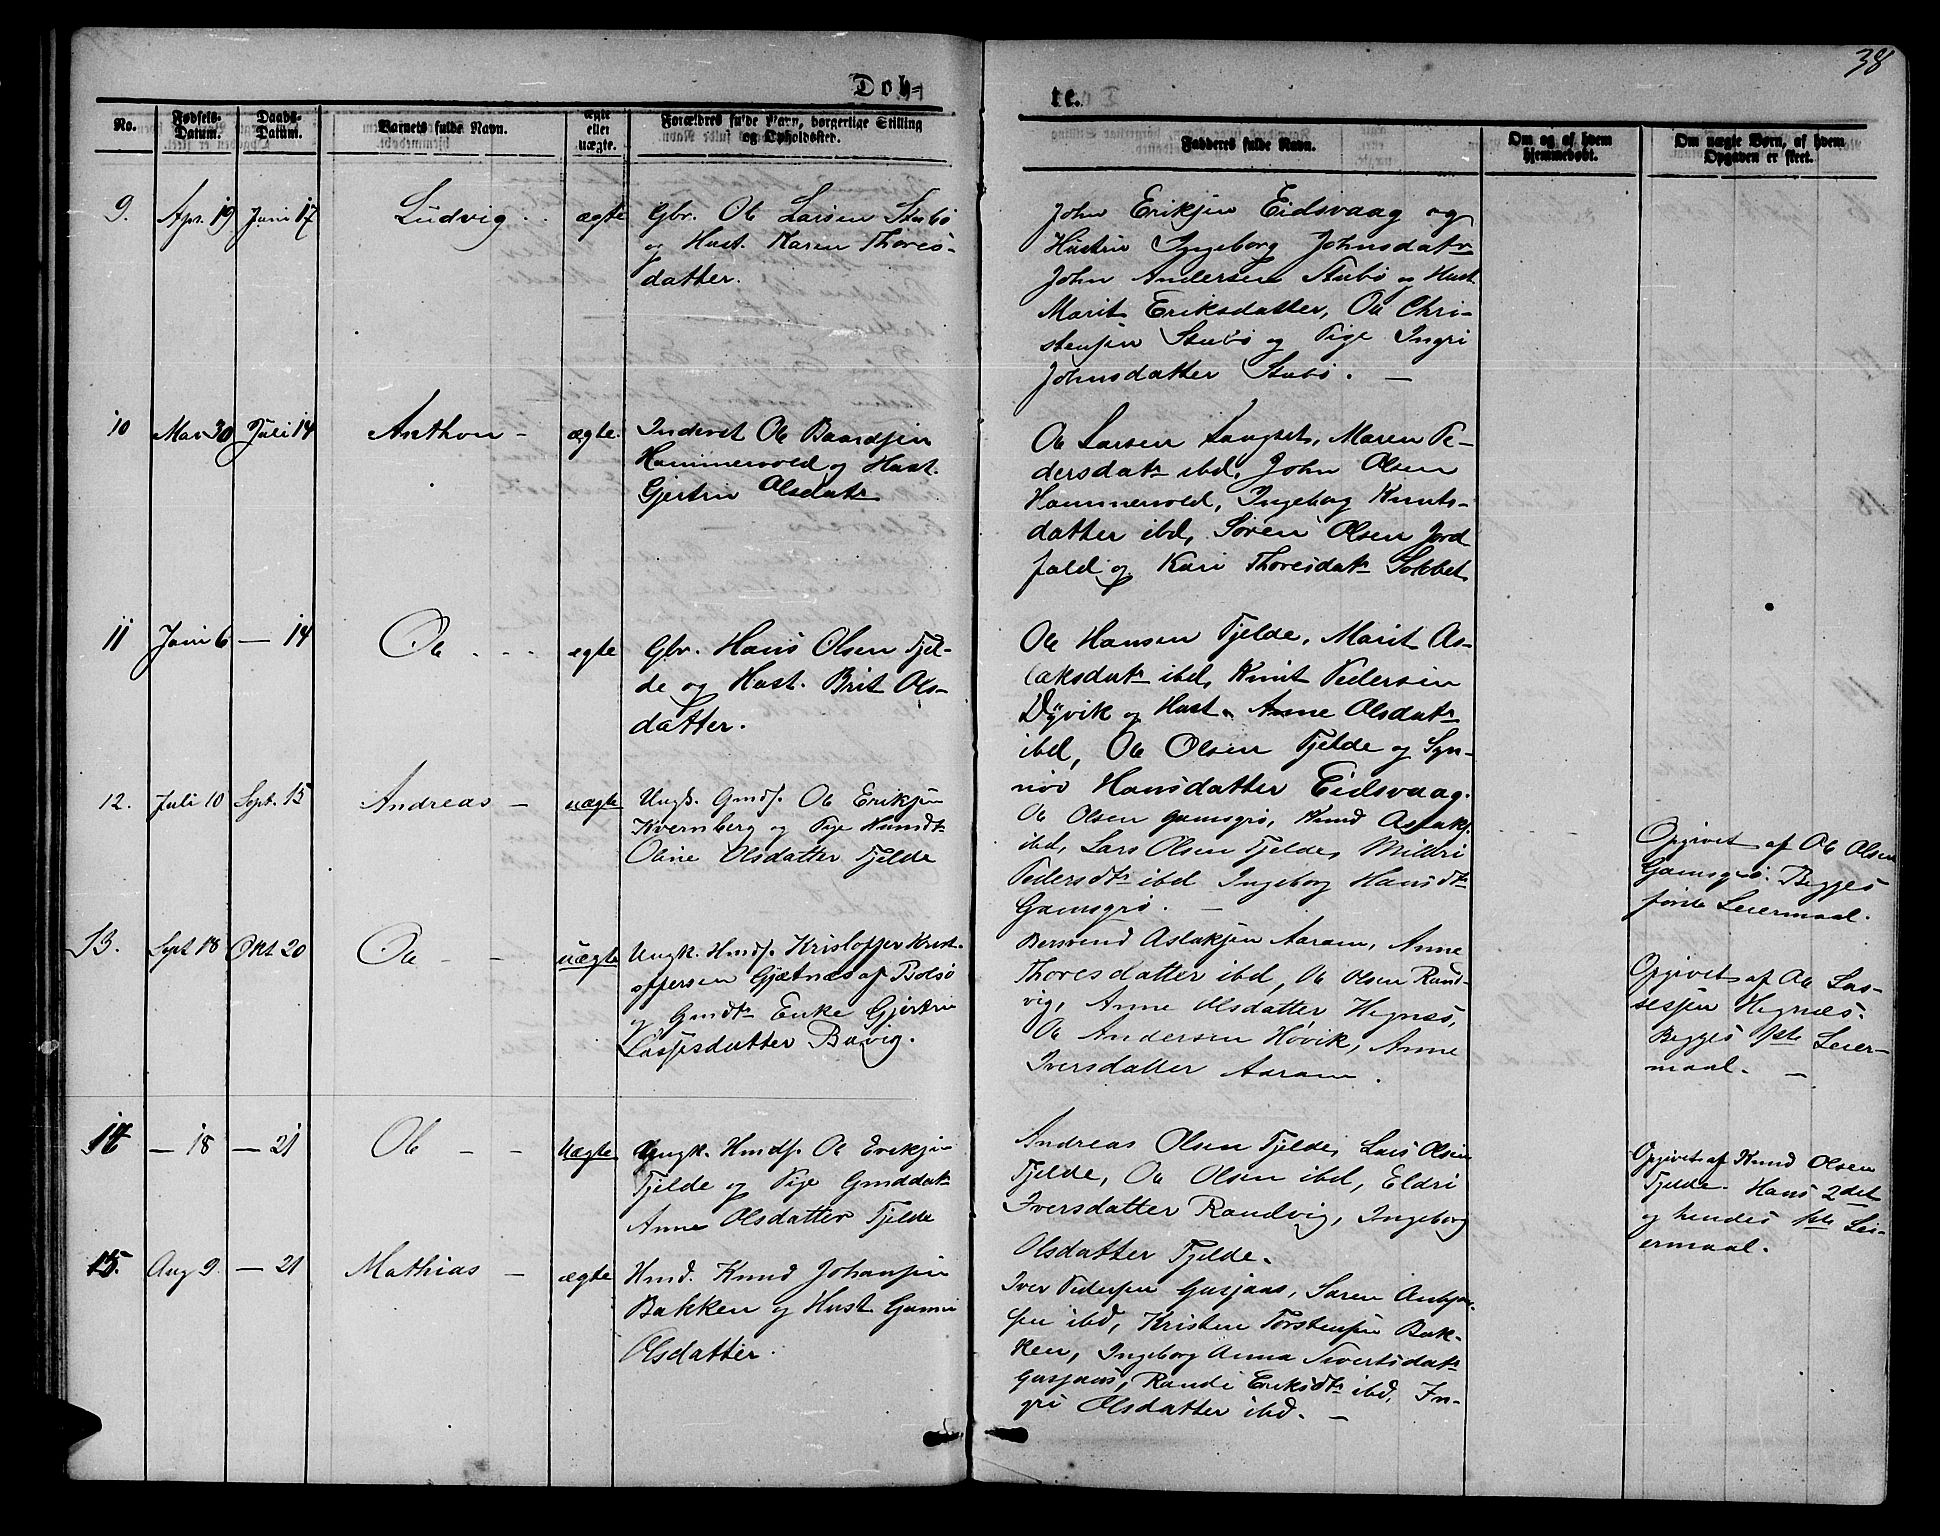 38
Døb-
te.
No.
Fødsels-
Datum.
Daabs-
Datum.
Barnets fulde Navn.
ægte
eller
uægte.
Forældres fulde Navn, borgerlige Stilling
og Opholdssted.
Fadderes fulde Navn.
Om og af hvem
hjemmedøbt.
Om uægte Børn, af hvem
Opgaven er skeet.
9.
Apr. 19
Juni 17
Ludvig
ægte
Gbr. Ole Larsen Stubø
og Hust. Karen Thores-
datter.
John Eriksen Eidsvaag og
Hustru Ingeborg Johnsdatr
John Andersen Stubø og Hust.
Marit Eriksdatter, Ole Chri-
stensen Stubø og Pige Ingri
Johnsdatter Stubø. —
10
Mai 30
Juli 14
Anthon –
ægte.
Inderst Ole Baardsen
Hammervold og Hust.
Gjertru Olsdatr
Ole Larsen Langset, Maren Pe-
dersdatr ibd, John Olsen
Hammervold, Ingeborg Knuts-
datter ibd, Søren Olsen Jord
fald og Kari Thoresdatr
11
Juni 6
— 14
Ole
egte
Gbr. Hans Olsen Fjel-
de og Hust. Brit Ols-
datter.
Ole Hansen Fjelde, Marit As-
laksdatr ibd, Knut Pedersen
Dyvik og Hust. Anne Olsdatr
ibd, Ole Olsen Fjelde og Syn-
növ Hansdatter Eidsvaag.
12.
Juli 10
Sept. 15
Andreas –
uægte
Ungk. Gmds. Ole Eriksen
Kvernberg og Pige Hmdtr
Oline Olsdatter Fjelde
Ole Olsen Gamsgrø, Knud Aslaks.
ibd, Lars Olsen Fjelde, Mildri
Pedersdtr ibd Ingeborg Hansdtr
Gamsgrø. —
Opgivet af Ole Olsen
Gamsgrø. Begges
første Leiermaal.
13.
Sept 18
Okt 20
Ole – –
uægte
Ungk. Hmds. Kristoffer Krist-
offersen Gjætnes af Bolsø
og Gmdtr Enke Gjertru
Lassesdatter Buvig.
Bersvend Aslaksen Aaram, Anne
Thoresdatter ibd, Ole Olsen Rand-
vig, Anne Olsdatter Hegnæs,
Ole Andersen Høvik, Anne
Iversdatter Aaram.
Opgivet af Ole Las-
sesen Hegnæs.
Begges 1ste Leier-
maal. —
14
— 18
— 21
Ole – –
Uægte
Ungk. Hmds. Ole Eriksen
Fjelde og Pige Gmddatr
Anne Olsdatter Fjelde
Andreas Olsen Fjelde, Lars Olsen
Fjelde, Ole Olsen ibd, Eldri
Iversdatter Randvig, Ingeborg
Olsdatter Fjelde.
Opgivet af Knud Olsen
Fjelde. Hans 2det
og hendes 1ste Lei-
ermaal.
15.
Aug 9.
— 21
Mathias –
ægte
Hmd. Knud Johansen
Bakken og Hust
Olsdatter.
Iver Pedersen Gusjaas, Søren
sen ibd, Kristen Torstensen Bak-
ken, Ingeborg Anna Sivertsdatr
Gusjaas, Randi Eriksdtr ibd, In-
gri Olsdatter ibd. —